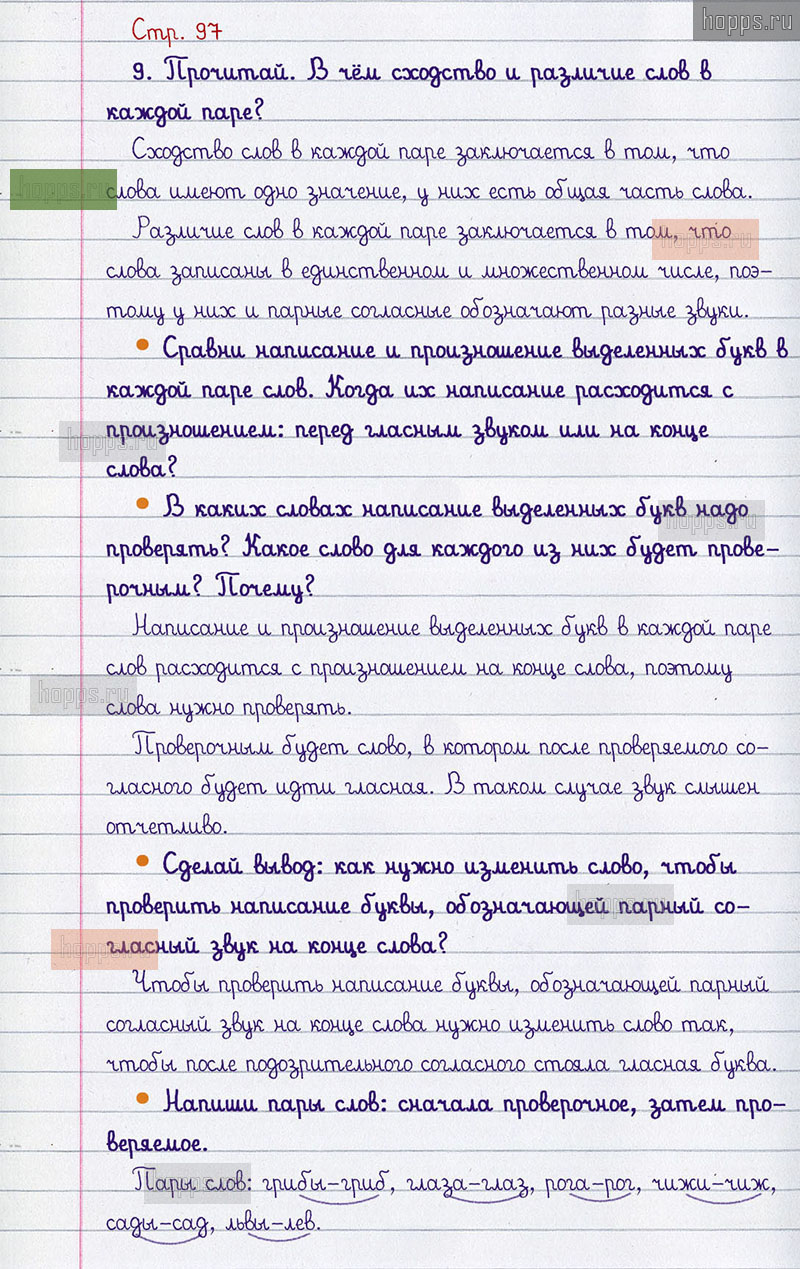 hopps.ru
Стр. 97
9. Прочитай. В чём сходство и различие слов в
каждой паре?
Сходство слов в каждой паре заключается в том, что
hopps.ru
слова имеют одно значение, у них есть общая часть слова.
Различие слов в каждой паре заключается в том, что
hopps.ru
слова записаны в единственном и множественном числе, поэ-
тому у них и парные согласные обозначают разные звуки.
• Сравни написание и произношение выделенных букв в
каждой паре слов. Когда их написание расходится с
произношением: перед гласным звуком или на конце
hopps.ru
слова?
• В каких словах написание выделенных букв надо
hopps.ru
проверять? Какое слово для каждого из них будет прове-
рочным? Почему?
Написание и произношение выделенных букв в каждой паре
слов расходится с произношением на конце слова, поэтому
hopps.ru
слова нужно проверять.
Проверочным будет слово, в котором после проверяемого со-
гласного будет идти гласная. В таком случае звук слышен
отчетливо.
• Сделай вывод: как нужно изменить слово, чтобы
проверить написание буквы, обозначающей парный со-
hopps.ru
гласный звук на конце слова?
hopps.ru
Чтобы проверить написание буквы, обозначающей парный
согласный звук на конце слова нужно изменить слово так,
чтобы после подозрительного согласного стояла гласная буква.
• Напиши пары слов: сначала проверочное, затем про-
веряемое.
Пары слов: грибы-гриб, глаза-глаз, рога-рог, чижи-чиж,
hopps.ru
сады-сад, львы-лев.